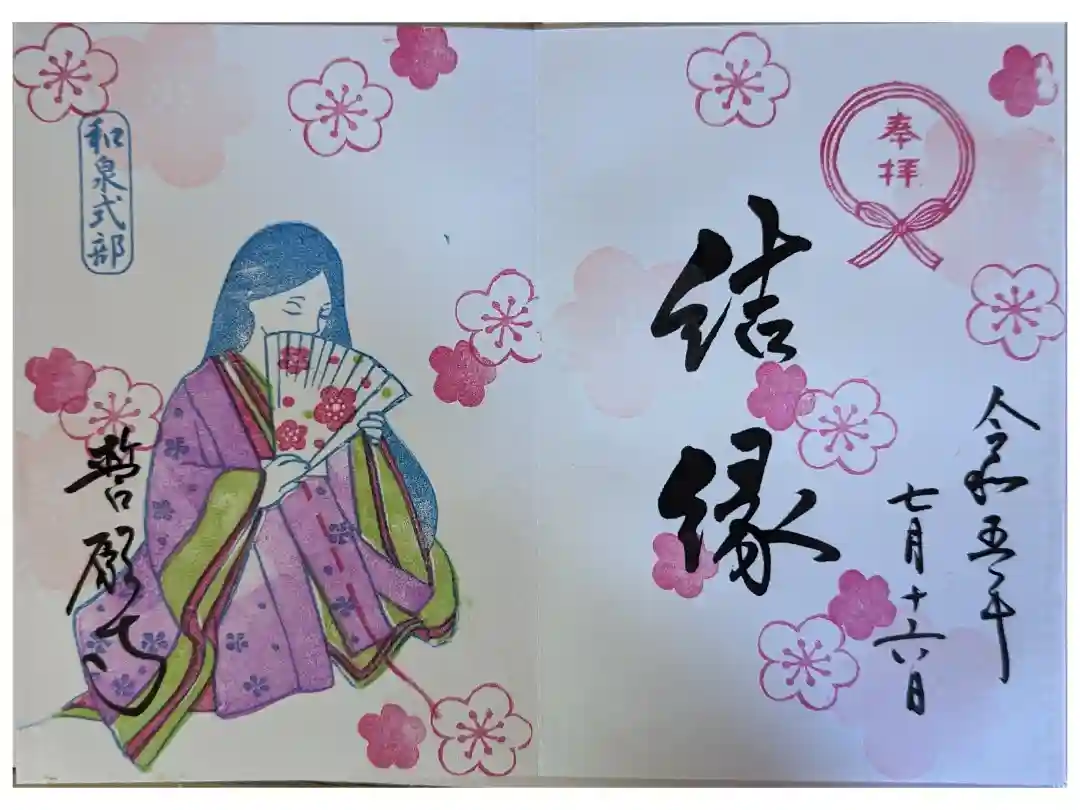 奉拝
結縁
令和五年
七月十六日
和泉式部
誓願寺